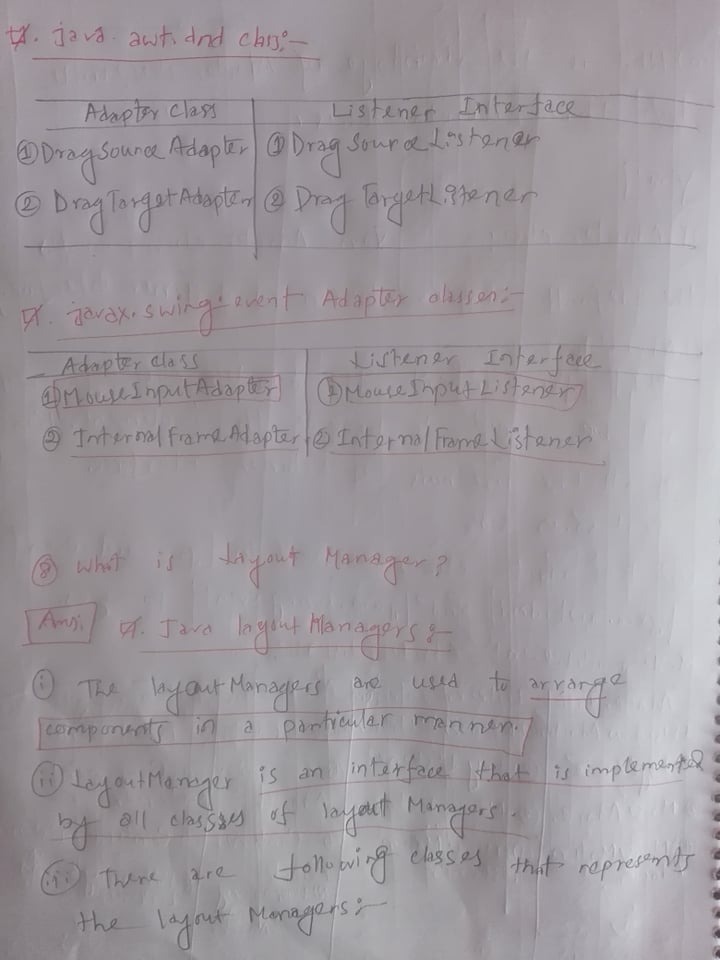 java.awt.dnd class:-
Adapter class Listener Interface
① DragSourceAdapter ① DragSourceListener
② DragTargetAdapter ② DragTargetListener
javax.swing.event Adapter classes:-
Adapter class Listener Interface
① MouseInputAdapter ① MouseInputListener
② InternalFrameAdapter ② InternalFrameListener
⑧ What is Layout Manager?
Ans: Java layoutManagers:-
i The layoutManagers are used to arrange
components in a particular manner.
ii LayoutManager is an interface that is implemented
by all classes of layout Managers.
iii There are following classes that represents
the layout Managers:-